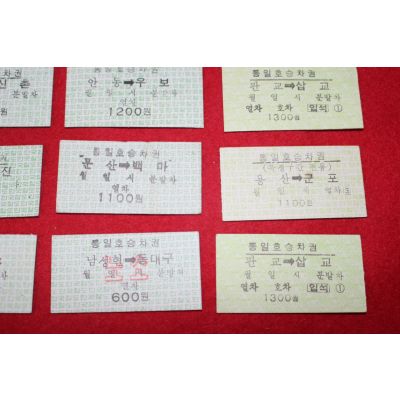 승차권
신촌
안동➡우보
월 일 시 분발차
열석
1200원
통일호승차권
판교➡삽교
월 일 시 분발차
열차 호차 [입석] ①
1300원
진
통일호승차권
문산➡백마
월 일 시 분발차
열차
1100원
통일호승차권
용산➡군포
월 일 시 열차
1100원
통일호승차권
남성현➡동대구
월 일 시 분발차
열차
600원
통일호승차권
판교➡삽교
월 일 시 분발차
열차 호차 [입석] ①
1300원